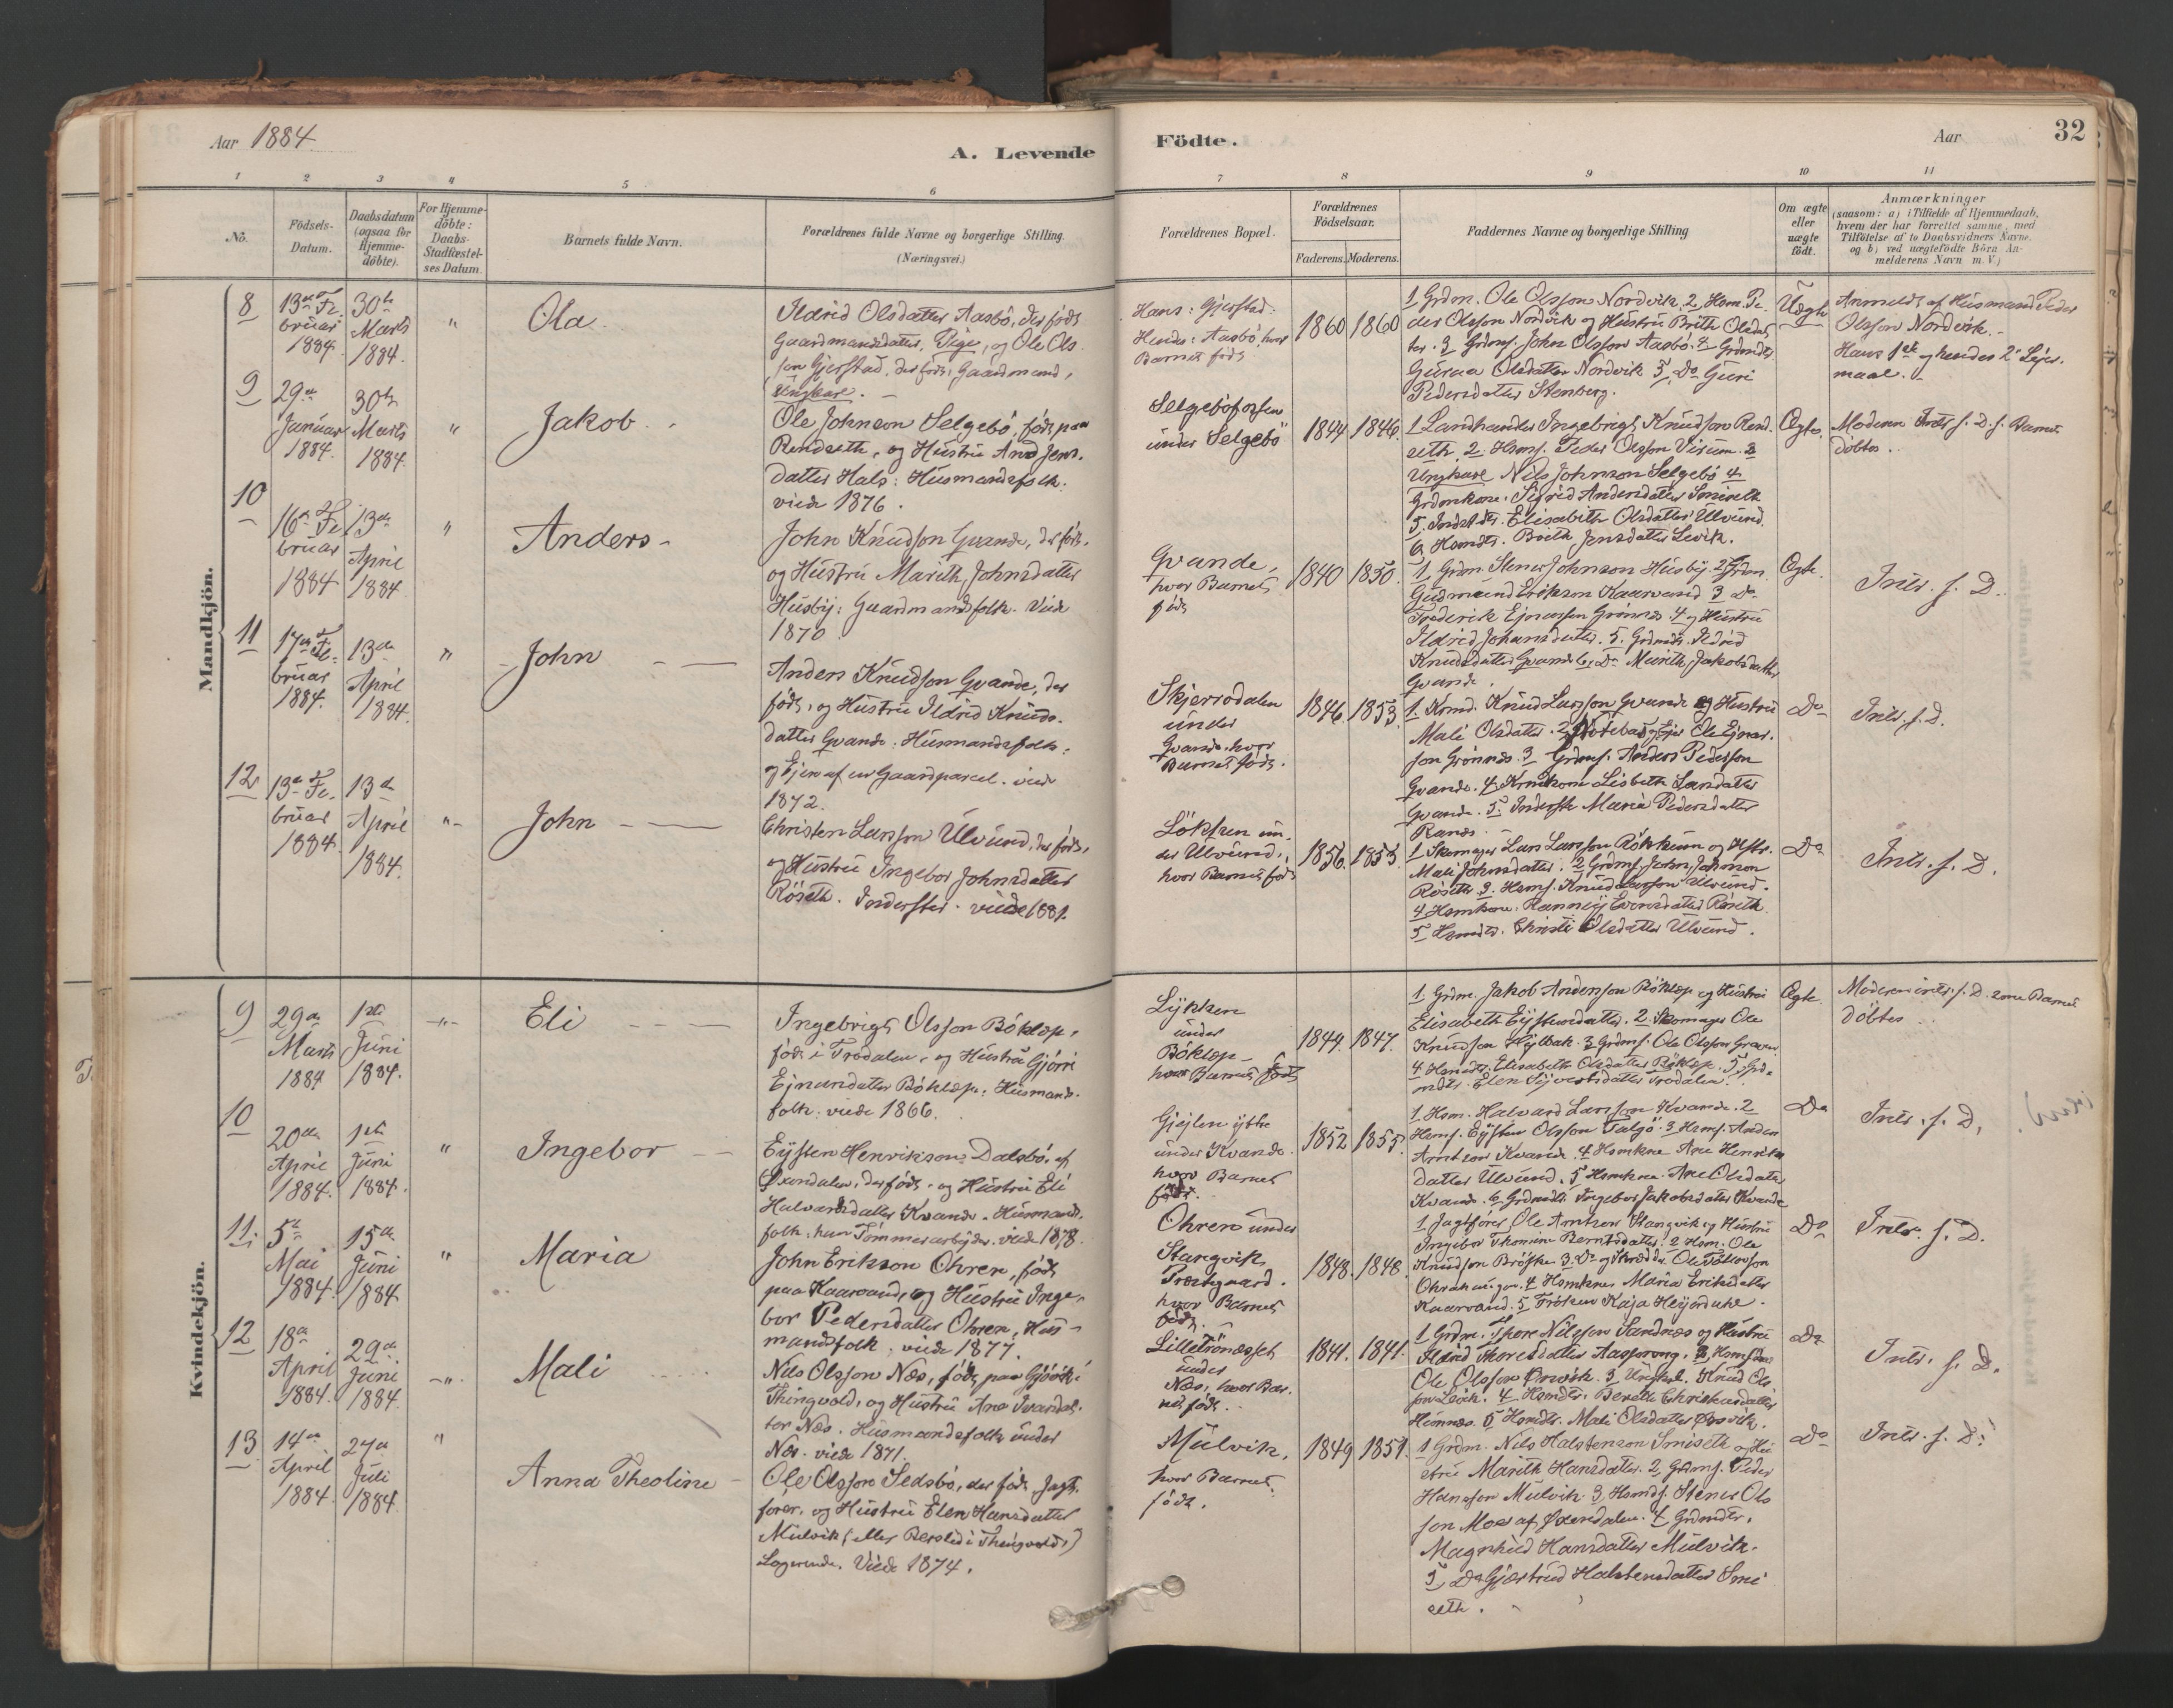 Aar 1884.
A. Levende
Födte.
Aar
32
1
2
3
4
5
6
7
8
9
10
11
No.
Födsels-
Datum.
Daabsdatum
(ogsaa for
Hjemme-
döbte).
For Hjemme-
döbte:
Daabs-
Stadfæstel-
ses Datum.
Barnets fulde Navn.
Forældrenes fulde Navne og borgerlige Stilling
(Næringsvei.)
Forældrenes Bopæl.
Forældrenes
Födselsaar.
Faderens.
Moderens.
Faddernes Navne og borgerlige Stilling
Om ægte
eller
uægte
födt.
Anmærkninger
(saasom: a) i Tilfælde af Hjemmedaab,
hvem der har forrettet samme, med
Tilföielse af to Daabsvidners Navne,
og b) ved uægtefödte Börn An-
melderens Navn m. V.)
Mandkjön.
8
13de Fe-
bruar
1884.
30te
Marts
1884.
"
Ola
Ildrid Olsdatter Aasbö, der födt
Gaardmandsdatter, Pige, og Ole Ols-
son Gjerstad, der födt, Gaardmand,
Ungkarl.
Hans: Gjerstad.
Hendes: Aasbö, hvor
Barnet födt.
1860
1860
1 Grdm. Ole Olsson Nordvik. 2 Hsm. Pe-
der Olsson Nordvik og Hustru Brith Olsdat-
ter. 3 Grdms. John Olsson Aasbö. 4 Grdmdtr.
Gurua Olsdatter Nordvik 5 Do Guri
Pedersdatter Stenberg.
Uægte
Anmeldt af Husmand Peder
Olsson Nordvik.
Hans 1ste og hendes 2det Leier-
maal.
9
29de
Januar
1884.
30te
Marts
1884.
"
Jakob.
Ole Johnson Selgebö, födt paa
Rendseth, og Hustru And Jens-
datter Hals: Husmandsfolk.
viede 1876.
Selgeböfossen
under Selgebö
1844
1846.
1 Landhandler Ingebrigt Knudson Rend-
seth. 2. Hsms. Peder Olsson Virum. 3
Ungkarl Nils Johnson Selgebö 4
Grdmkone. Sigrid Andersdatter Smiseth
5. Indst.dtr. Elisabeth Olsdatter Ulvund.
6 Hsmdtr. Brith Jensdatter Levik.
Ægte.
Moderen Intr. f. D. f. Barnet
döbtes.
10
16de Fe-
bruar
1884
13de
April
1884
"
Anders
John Knudson Gvande, der födt,
og Hustru Marith Johnsdatter
Husby: Gaardmandsfolk. Viede
1870.
Gvande,
hvor Barnet
födt
1840
1850.
1 Grdm. Stener Johnson Husby. 2 Grdm.
Gudmund Erikson Kaarvand 3 Do
Frederik Ejnarsson Grönnes 4 og Hustru
Ildrid Johansdatter. 5. Grdmdtr. Ildrid
Knudsdatter Gvande 6, Do Marith Jakobsdatter
Gvande.
Ægte.
Intr. f. D.
11
17de Fe-
bruar
1884.
13de
April
1884.
"
John
Anders Knudson Gvande, der
födt, og Hustru Ildrid Knuds-
datter Gvande: Husmandsfolk,
og Ejere af en Gaardparcel. viede
1872.
Skjerrodalen
under
Gvande, hvor
Barnet födt.
1846.
1853.
1. Krmd. Knud Larsson Gvande og Hustru
Mali Olsdatter. 2 Ole Ejnar-
son Grönnes 3 Grdms. Anders Pedersson
Gvande. 4. Krmkone Lisbeth Larsdatter
Gvande. 5. Inderste Maria Pedersdatter
Do
Intr. f. D.
12
13de Fe-
bruar
1884.
13de
April
1884.
"
John
Christen Larsson Ulvund, der födt,
og Hustru Ingebor Johnsdatter
Röseth. Inderster. viede 1881.
Löksen un-
der Ulvund,
hvor Barnet födt
1856.
1853
1 Skomager Lars Larsson Rökkum og Hstr.
Mali Johnsdatter. 2 Grdms. John Johnson
Röseth 3. Hsms. Knud Larsson Ulvund.
4 Hsmkone. Rannei Evensdatter Röseth
5 Hsmdtr. Christi Olsdatter Ulvund.
Do
Intr. f. D.
Kvindekjön.
9
29de
Marts
1884
1ste
Juni
1884.
"
Eli
Ingebrigt Olsson Böklep,
födt i Trodalen, og Hustru Gjörri
Ejnarsdatter Böklep: Husmands-
folk. viede 1866.
Lykken
under
Böklep
hvor Barnet födt
1844.
1847.
1. Grdm. Jakob Anderson Böklep og Hustru
Elisabeth Eystensdatter. 2. Skomager Ole
Knudson Hylbak. 3 Grdms. Ole Olsson Graven
4 Hsmdtr. Elisabeth Olsdatter Böklep. 5. Grd-
mdtr. Elen Sivertsdatter Trodalen.
Ægte.
Moderen intr. f. D. som Barnet
döbtes
10
20de
April
1884.
1ste
Juni
1884.
"
Ingebor
Eysten Henrikson Dalsbö, af
Öxendalen, der födt, og Hustru Eli
Halvardsdatter Kvande. Husmands-
folk: han Tömmerarbejder. viede 1878.
Gjejlen ytre
under Kvande.
hvor Barnet
födt.
1852
1855.
1. Hsm. Halvard Larsson Kvande. 2
Hsms. Eysten Olsson Talgö. 3 Hsms. Anders
Arntson Kvande. 4 Hsmkone Ane Henriks-
datter Ulvund. 5 Hsmkone. Ane Olsdatter
Kvande. 6 Grdmdtr. Ingebor Jakobsdatter Kvande
Do
Intr. f. D.
11.
5te
Mai
1884.
15de
Juni
1884
"
Maria
John Erikson Ohren, födt
paa Kaarvand, og Hustru Inge-
bor Pedersdatter Ohren, Hus-
mandsfolk, viede 1877.
Ohren under
Stangvik
Præstegaard.
hvor Barnet
födt.
1848.
1848.
1 Jagtförer Ole Arntson Stangvik og Hustru
Ingebor Thomine Berntsdatter. 2 Hsm. Ole
Knudson Bröske 3. Do og Skrædder Ole Tollevson
Ohrahaugen. 4 Hsmkone Maria Eriksdatter
Kaarvand. 5 Fröken Kaja Heyerdahl.
Do
Intr. f. D.
12
18de
April
1884.
29de
Juni
1884.
"
Mali
Nils Olsson Næs, födt paa Gjövik i
Thingvold, og Hustru Ane Ivarsdat-
ter Næs. Husmandsfolk under
Næs. viede 1871.
Lilletrönæsset
under
Næs, hvor Bar-
net födt.
1841.
1841.
1 Grdm. Thore Nilsson Sandnæs og Hustru
Ildrid Thoresdatter Aasprong. 2 Hsms
Ole Olsson Örsvik. 3 Ungkarl. Knud Ols-
son Levik. 4. Hsmdtr. Bereth Christensdatter
Hamnes. 5 Hsmdtr. Mali Olsdatter Örsvik.
Do
Intr. f. D.
13
14de
April
1884.
27de
Juli
1884.
"
Anna Theoline
Ole Olsson Sedsbö, der födt. Jagt-
förer, og Hustru Elen Hansdatter
Mulvik (eller Berslid i Thingvold)
Logerende. Viede 1874.
Mulvik,
hvor Barnet
födt.
1849
1851.
1 Grdm. Nils Halstenson Smiseth og Hu-
stru Marith Hansdatter. 2, Grdms. Peder
Hansson Mulvik 3, Hsmds. Stener Ols-
son Moer af Öxendalen. 4 Grdmdtr.
Magnhild Hansdatter Mulvik.
5, Do Gjertrud Halstensdatter Smi-
seth.
Do
Intr. f. D.